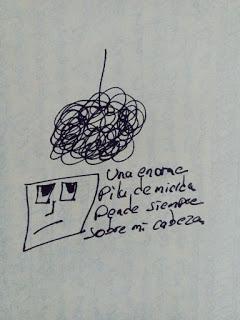 Una enorme
Pila de mierda
Pende siempre
sobre mi cabeza